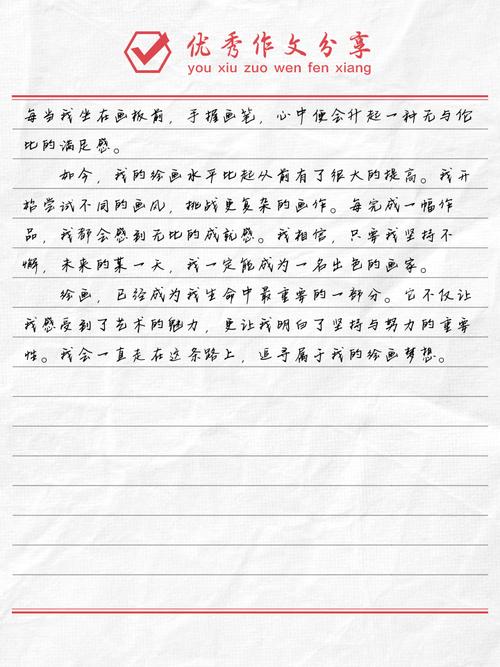 优秀作文分享
you xiu zuo wen fen xiang
每当我坐在画板前，手握画笔，心中便会升起一种无与伦
比的满足感。
如今，我的绘画水平比起从前有了很大的提高。我开
始尝试不同的画风，挑战更复杂的画作。每完成一幅作
品，我都会感到无比的成就感。我相信，只要我坚持不
懈，未来的某一天，我一定能成为一名出色的画家。
绘画，已经成为我生命中最重要的一部分。它不仅让
我感受到了艺术的魅力，更让我明白了坚持与努力的重要
性。我会一直走在这条路上，追寻属于我的绘画梦想。